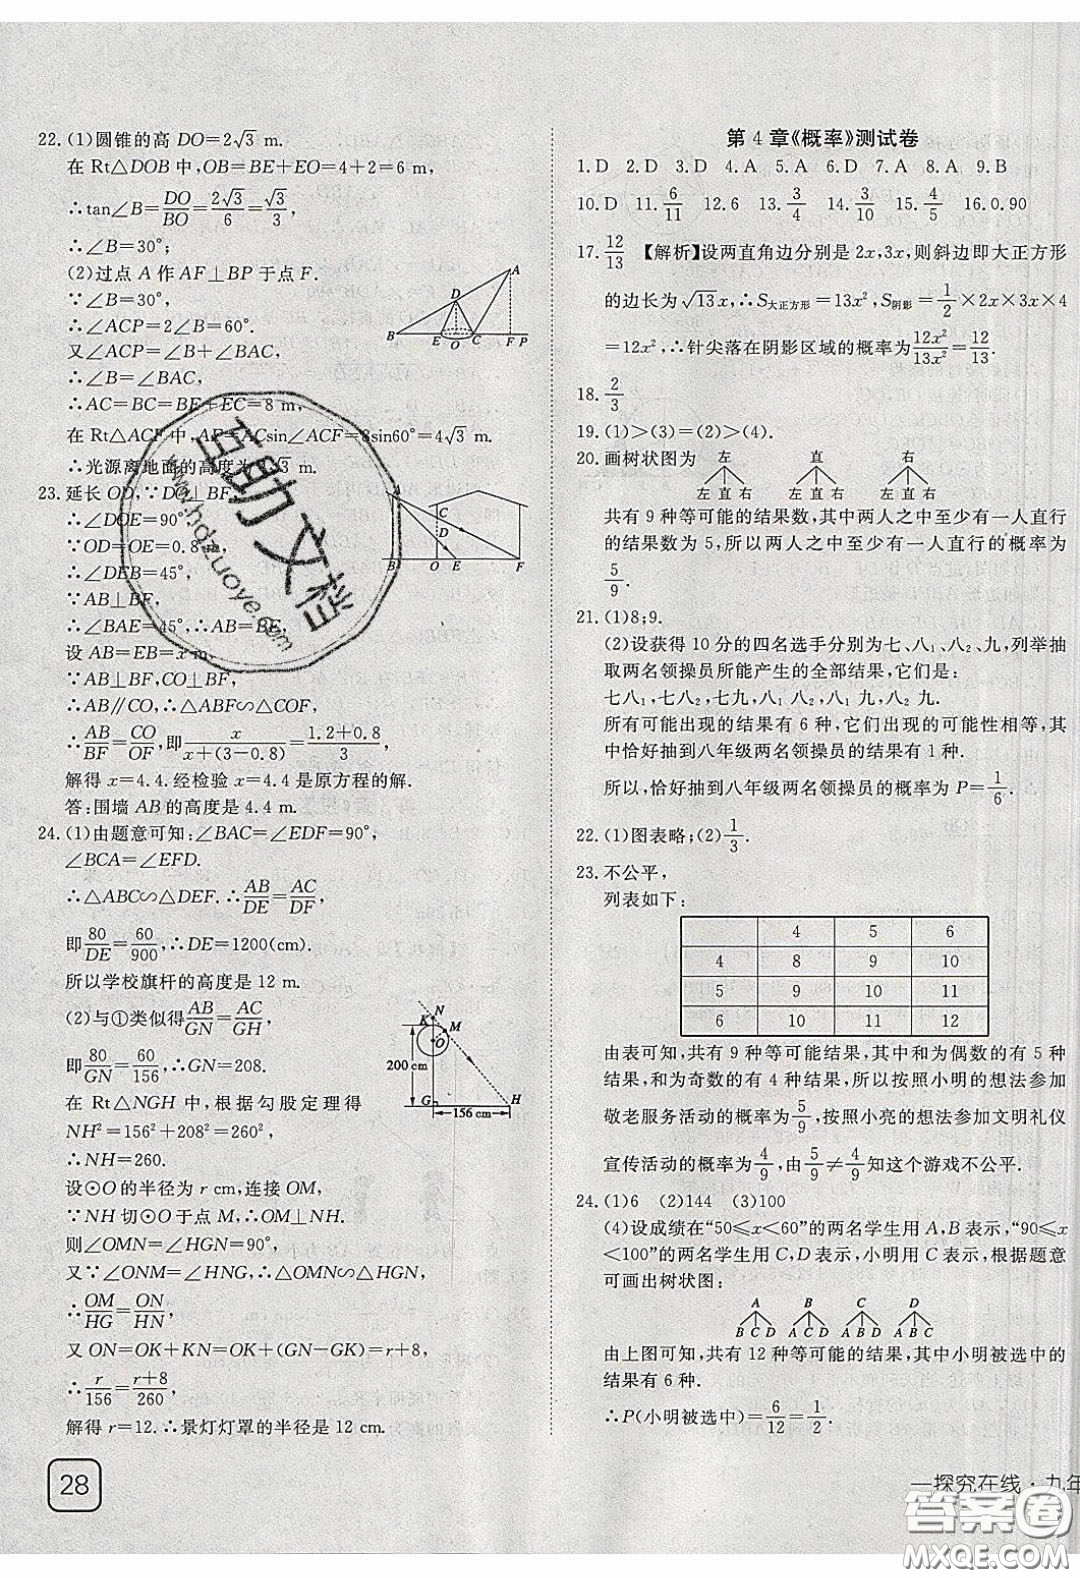 22. (1)圆锥的高 DO=2√3 m.
在 Rt△DOB 中,OB=BE+EO=4+2=6 m,
∴tan∠B=DO/BO=2√3/6=√3/3,
∴∠B=30°;
(2)过点 A 作 AF⊥BP 于点 F.
∵∠B=30°,
∴∠ACP=2∠B=60°.
又∠ACP=∠B+∠BAC,
∴∠B=∠BAC,
∴AC=BC=BE+EC=8 m,
在 Rt△ACF 中,AF=ACsin∠ACF=8sin60°=4√3 m.
∴光源离地面的高度为4√3 m.
A
D
B E O C F P
23. 延长 OD,∵DO⊥BF,
∴∠DOE=90°,
∵OD=OE=0.8 m,
∴∠DEB=45°,
∵AB⊥BF,
∴∠BAE=45°,∴AB=BE,
设 AB=EB=x m,
∵AB⊥BF,CO⊥BF,
∴AB∥CO,∴△ABF∽△COF,
∴AB/BF=CO/OF,即x/(x+(3-0.8))=(1.2+0.8)/3,
解得 x=4.4.经检验 x=4.4 是原方程的解.
答:围墙 AB 的高度是 4.4 m.
A
C
D
B O E F
24. (1)由题意可知:∠BAC=∠EDF=90°,
∠BCA=∠EFD.
∴△ABC∽△DEF.∴AB/DE=AC/DF,
即80/DE=60/900,∴DE=1200(cm).
所以学校旗杆的高度是 12 m.
(2)与①类似得AB/GN=AC/GH,
即80/GN=60/156,∴GN=208.
在 Rt△NGH 中,根据勾股定理得
NH²=156²+208²=260²,
∴NH=260.
设⊙O 的半径为 r cm,连接 OM,
∵NH 切⊙O 于点 M,∴OM⊥NH.
则∠OMN=∠HGN=90°,
又∵∠ONM=∠HGN,∴△OMN∽△HGN,
∴OM/HG=ON/HN,
又 ON=OK+KN=OK+(GN-GK)=r+8,
∴r/156=(r+8)/260,
解得 r=12.∴景灯灯罩的半径是 12 cm.
N
K M
O
200 cm
G H
156 cm
28
第 4 章《概率》测试卷
1. D 2. D 3. D 4. A 5. A 6. D 7. A 8. A 9. B
10. D 11. 6/11 12. 6 13. 3/4 14. 3/10 15. 4/5 16. 0.90
17. 12/13 【解析】设两直角边分别是 2x,3x,则斜边即大正方形
的边长为√13x,∴S大正方形=13x²,S阴影=1/2×2x×3x×4
=12x²,∴针尖落在阴影区域的概率为12x²/13x²=12/13.
18. 2/3
19. (1)>(3)=(2)>(4).
20. 画树状图为
左 直 右
左 直 右 左 直 右 左 直 右
共有 9 种等可能的结果数,其中两人之中至少有一人直行
的结果数为 5,所以两人之中至少有一人直行的概率为
5/9.
21. (1)8;9.
(2)设获得 10 分的四名选手分别为七、八₁、八₂、九,列举抽
取两名领操员所能产生的全部结果,它们是:
七八₁,七八₂,七九,八₁八₂,八₁九,八₂九.
所有可能出现的结果有 6 种,它们出现的可能性相等,其
中恰好抽到八年级两名领操员的结果有 1 种.
所以,恰好抽到八年级两名领操员的概率为 P=1/6.
22. (1)图表略;(2)1/3.
23. 不公平,
列表如下:
4 5 6
4 8 9 10
5 9 10 11
6 10 11 12
由表可知,共有 9 种等可能结果,其中和为偶数的有 5 种
结果,和为奇数的有 4 种结果,所以按照小明的想法参加
敬老服务活动的概率为5/9,按照小亮的想法参加文明礼仪
宣传活动的概率为4/9,由5/9≠4/9知这个游戏不公平.
24. (1)6 (2)144 (3)100
(4)设成绩在“50≤x<60”的两名学生用 A,B 表示,“90≤x
<100”的两名学生用 C,D 表示,小明用 C 表示,根据题意
可画出树状图:
A B C D
B C D A C D A B D A B C
由上图可知,共有 12 种等可能的结果,其中小明被选中的
结果有 6 种.
∴P(小明被选中)=6/12=1/2.
一探究在线·九年
互助文档
www.hdzuoye.com
答案圈
MXQE.COM